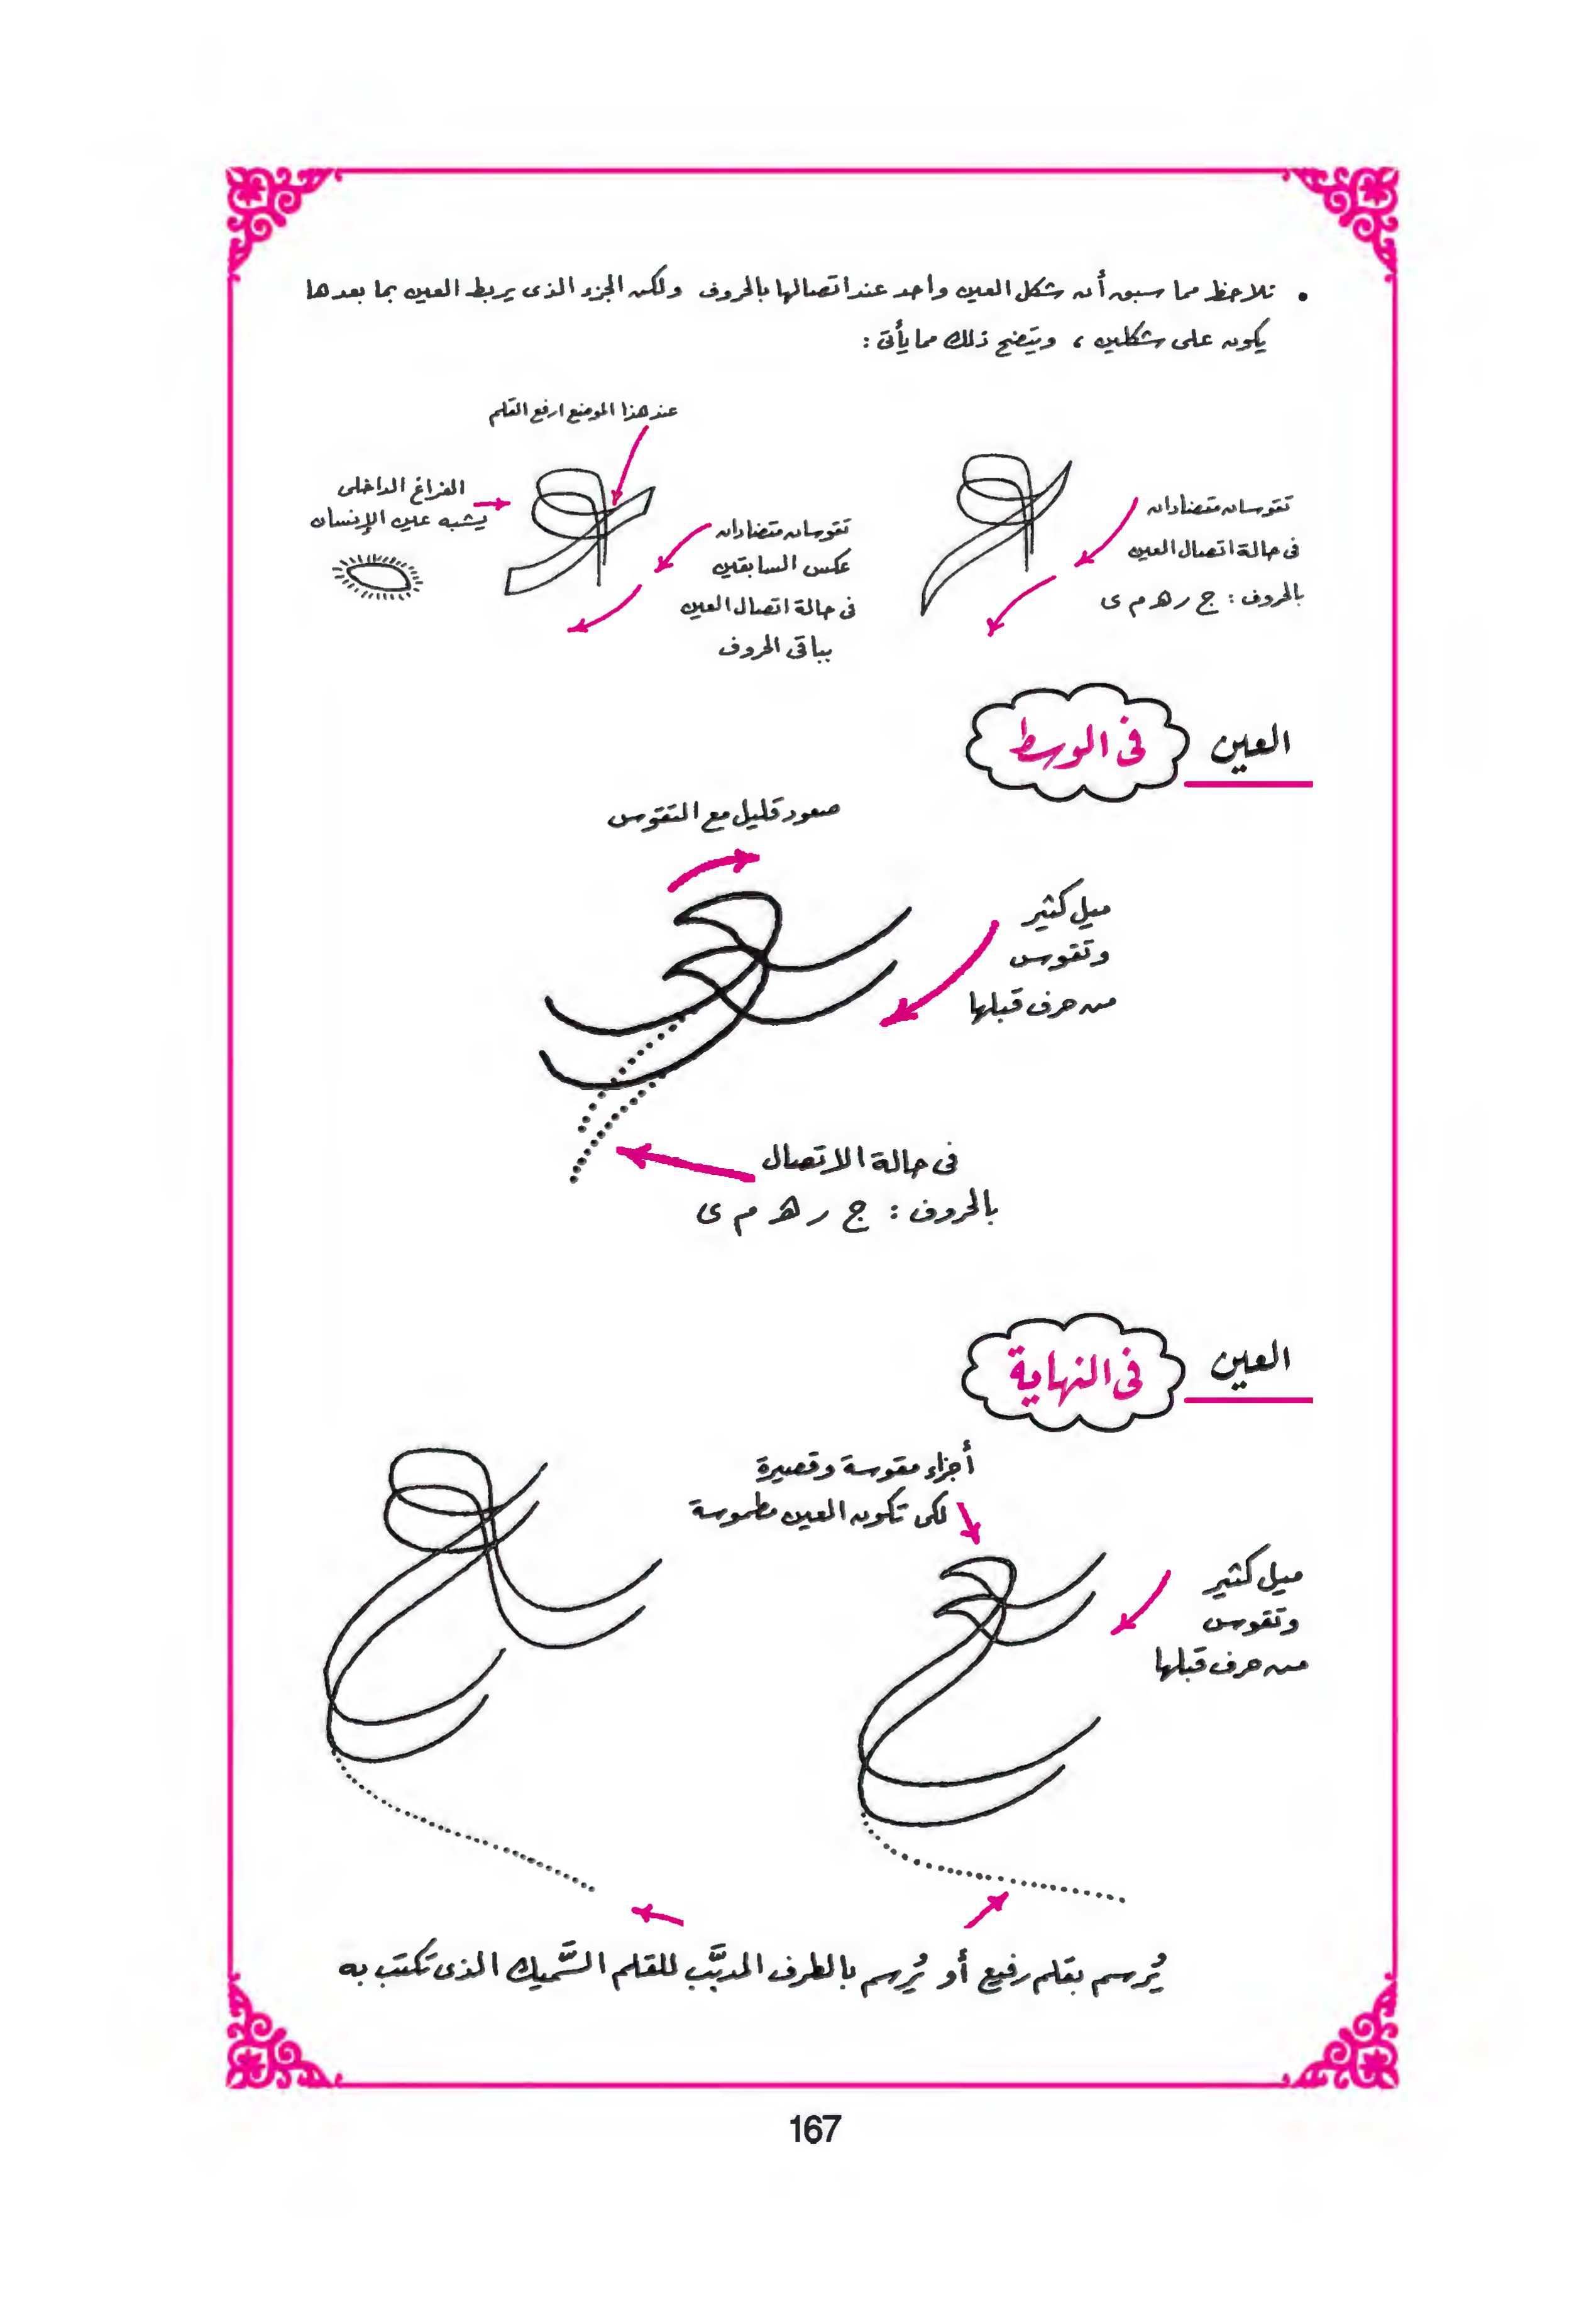 • نلاحظ مما سبق أن شكل العين واحد عند اتصالها بالحروف ولكن الجزء الذى يربط العين بما بعدها
يكون على شكلين ، ويتضح ذلك مما يأتى :
عند هذا الموضع ارفع القلم
الفراغ الداخلى
يشبه عين الإنسان
تقوسان متضادان
فى حالة اتصال العين
بالحروف : ج ر هـ م ى
تقوسان متضادان
عكس السابقين
فى حالة اتصال العين
بباقى الحروف
العين فى الوسط
صعود قليل مع التقوس
ميل كثير
وتقوس
من حرف قبلها
فى حالة الاتصال
بالحروف : ج ر هـ م ى
العين فى النهاية
أجزاء مقوسة وقصيرة
لكى تكون العين مطموسة
ميل كثير
وتقوس
من حرف قبلها
يُرسم بقلم رفيع أو يُرسم بالطرف المدبَّب للقلم السَّميك الذى تكتب به
167